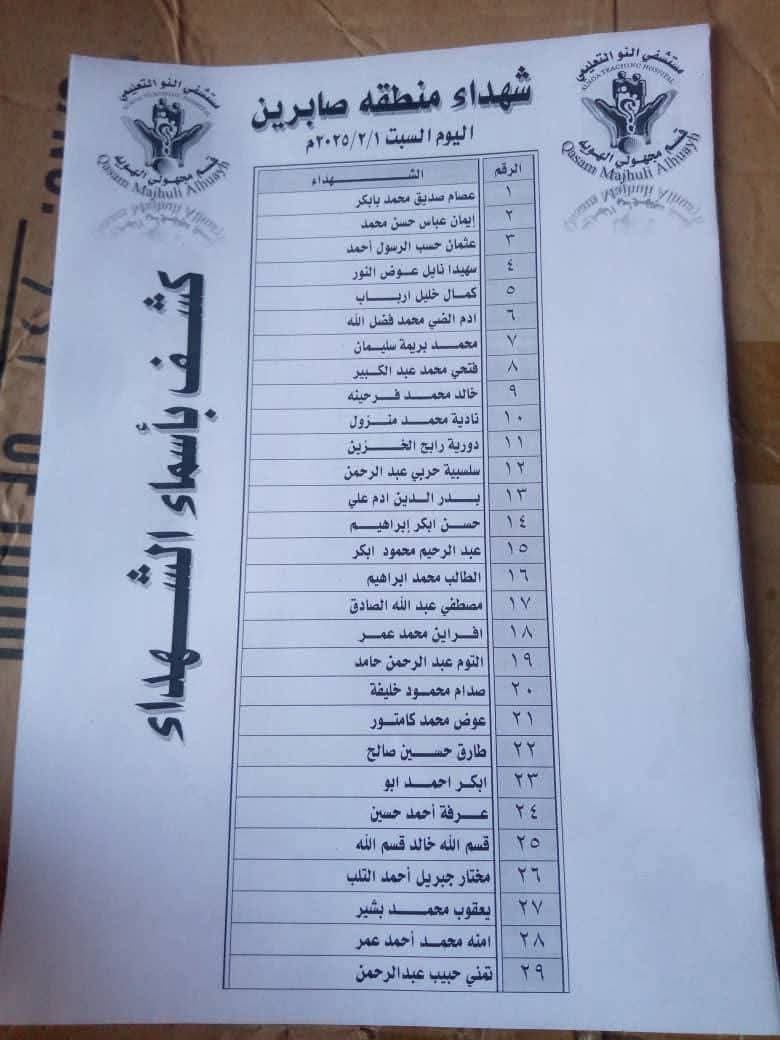 مستشفى النو التعليمي
ALNOA TEACHING HOSPITAL
قسم مجهولي الهوية
Qasam Majhuli Alhuayh
شهداء منطقه صابرين
اليوم السبت ٢٠٢٥/٢/١م
مستشفى النو التعليمي
ALNOA TEACHING HOSPITAL
قسم مجهولي الهوية
Qasam Majhuli Alhuayh
كشف بأسماء الشهداء
الرقم الشهداء
١ عصام صديق محمد بابكر
٢ إيمان عباس حسن محمد
٣ عثمان حسب الرسول أحمد
٤ سهيدا نايل عوض النور
٥ كمال خليل ارباب
٦ ادم الضي محمد فضل الله
٧ محمد بريمة سليمان
٨ فتحي محمد عبد الكبير
٩ خالد محمد فرحينه
١٠ نادية محمد منزول
١١ دورية رابح الخزين
١٢ سلسبية حربي عبد الرحمن
١٣ بدر الدين ادم علي
١٤ حسن ابكر إبراهيم
١٥ عبد الرحيم محمود ابكر
١٦ الطالب محمد ابراهيم
١٧ مصطفي عبد الله الصادق
١٨ افراين محمد عمر
١٩ التوم عبد الرحمن حامد
٢٠ صدام محمود خليفة
٢١ عوض محمد كامتور
٢٢ طارق حسين صالح
٢٣ ابكر احمد ابو
٢٤ عرفة أحمد حسين
٢٥ قسم الله خالد قسم الله
٢٦ مختار جبريل أحمد التلب
٢٧ يعقوب محمد بشير
٢٨ امنه محمد أحمد عمر
٢٩ تمني حبيب عبدالرحمن